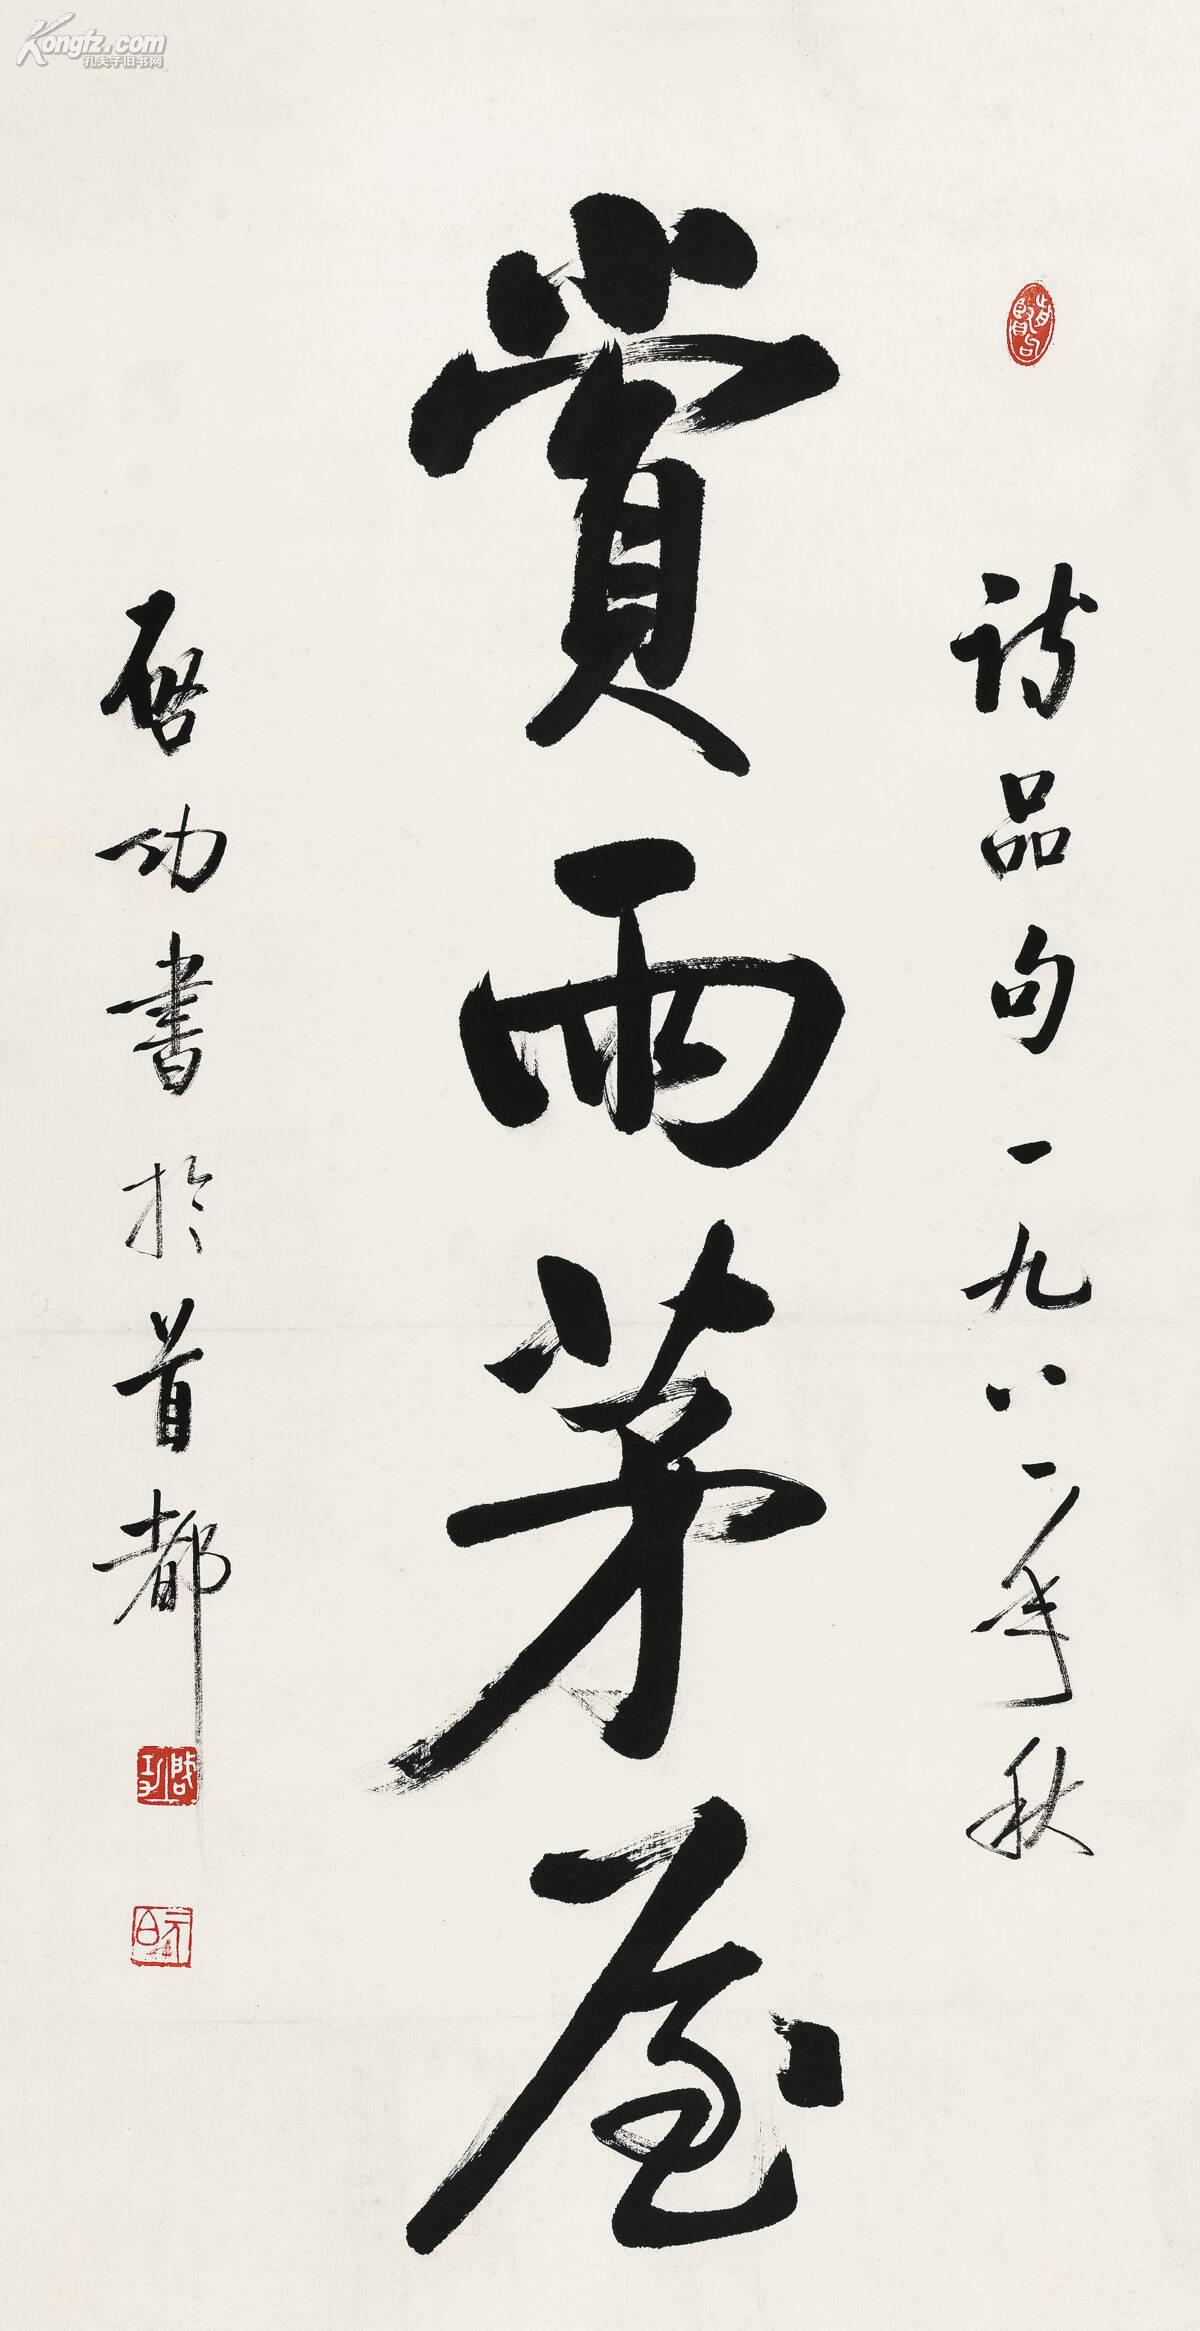 詩品句一九八一年秋
賞雨茅屋
啓功書於首都
啓功
元白
Kongfz.com
孔夫子旧书网